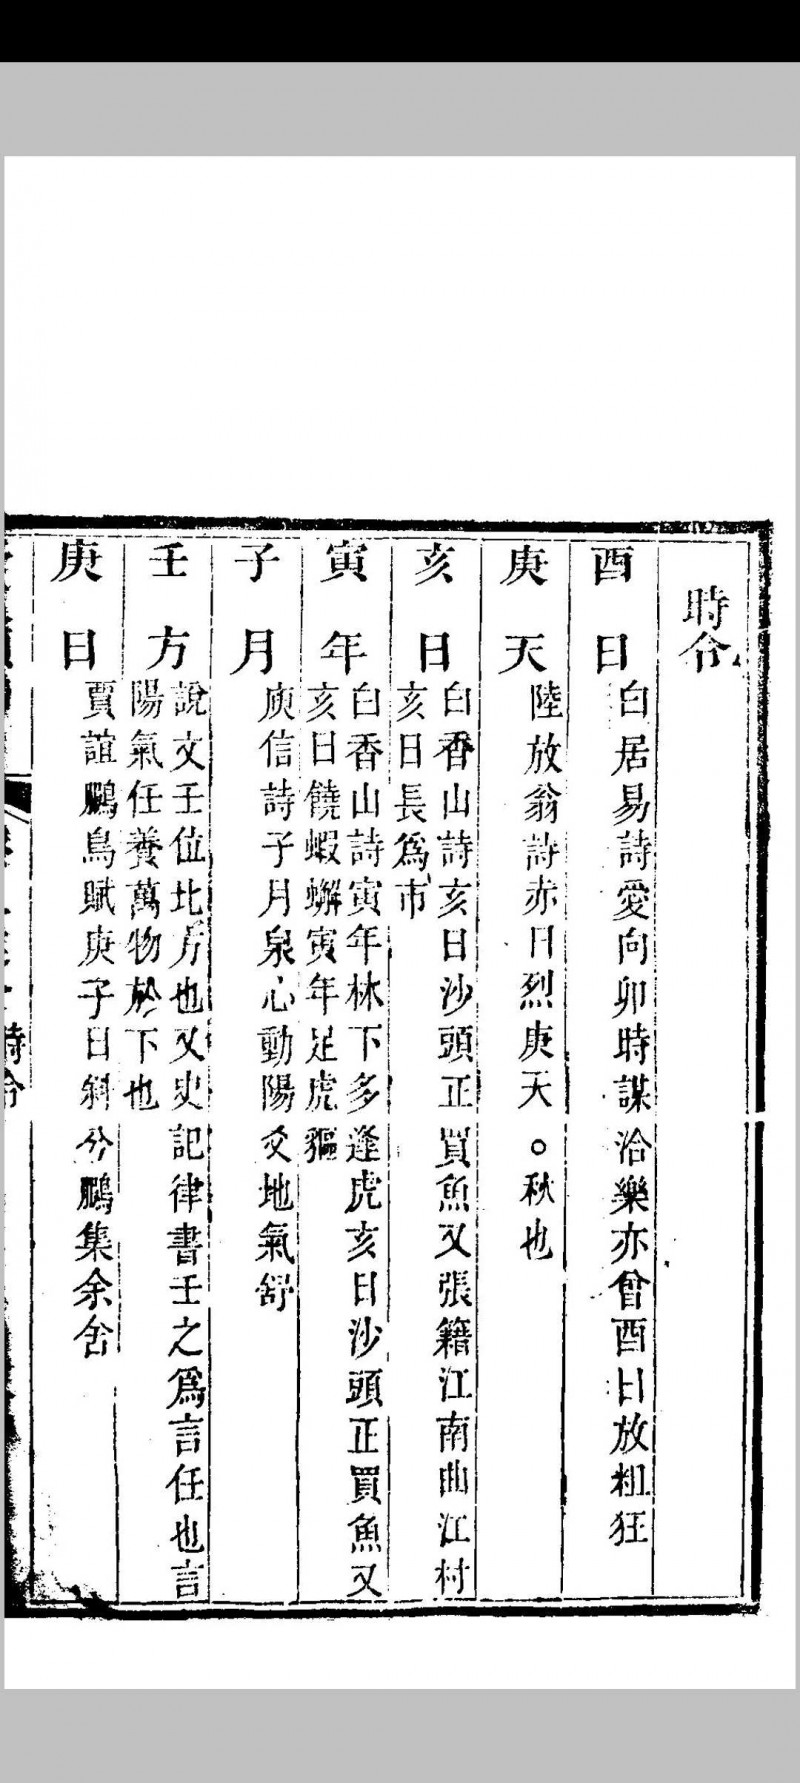 時令
酉日 白居易詩愛向卯時謀洽樂亦曾酉日放粗狂
庚天 陸放翁詩赤日烈庚天○秋也
亥日 白香山詩亥日沙頭正買魚又張籍江南曲江村
亥日長爲市
寅年 白香山詩寅年林下多逢虎亥日沙頭正買魚又
亥日饒蝦蠏寅年足虎貙
子月 庾信詩子月泉心動陽爻地氣舒
壬方 說文壬位北方也又史記律書壬之爲言任也言
陽氣任養萬物於下也
庚日 賈誼鵩鳥賦庚子日斜兮鵩集余舍
時令